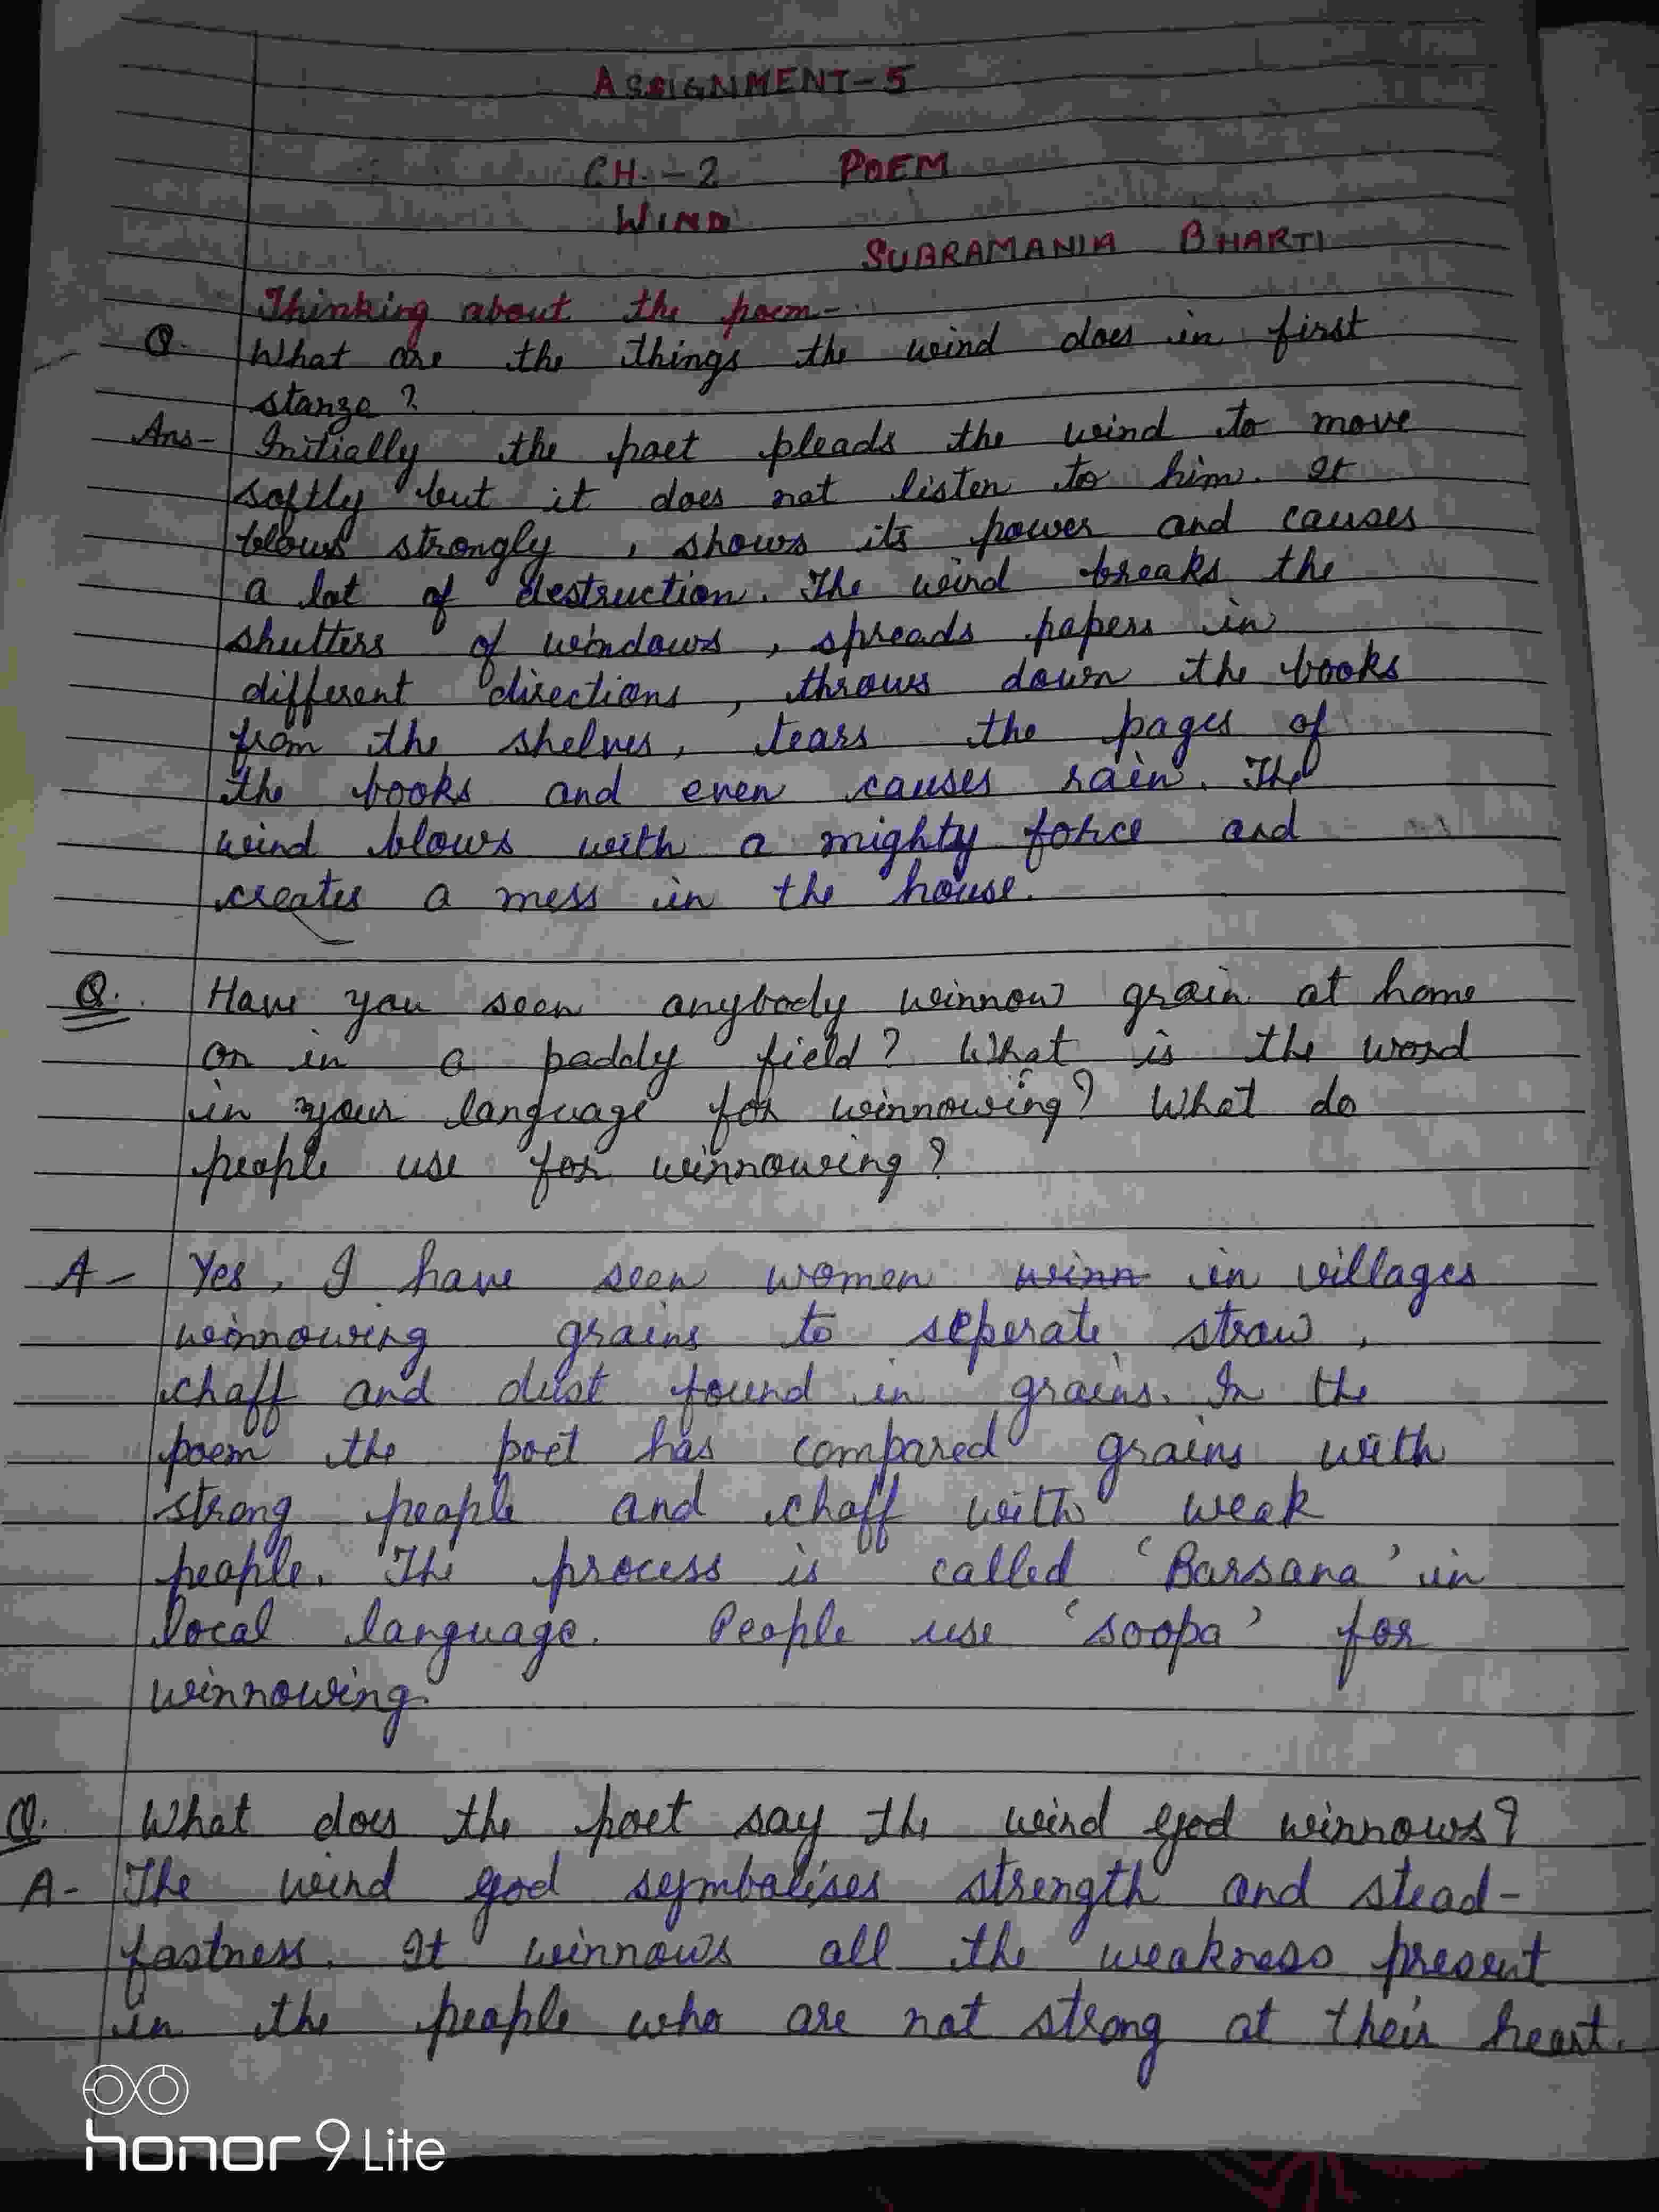 ASSIGNMENT-5
CH.-2 POEM
WIND
SUBRAMANIA BHARTI
Thinking about the poem-
Q. What are the things the wind does in first
stanza?
Ans- Initially the poet pleads the wind to move
softly but it does not listen to him. It
blows strongly, shows its power and causes
a lot of destruction. The wind breaks the
shutters of windows, spreads papers in
different directions, throws down the books
from the shelves, tears the pages of
the books and even causes rain. The
wind blows with a mighty force and
creates a mess in the house.
Q. Have you seen anybody winnow grain at home
or in a paddy field? What is the word
in your language for winnowing? What do
people use for winnowing?
A- Yes, I have seen women winn in villages
winnowing grains to seperate straw,
chaff and dust found in grains. In the
poem the poet has compared grains with
strong people and chaff with weak
people. The process is called 'Barsana' in
local language. People use 'soopa' for
winnowing.
Q. What does the poet say the wind god winnows?
A- The wind god symbolises strength and stead-
fastness. It winnows all the weakness present
in the people who are not strong at their heart.
honor 9 Lite